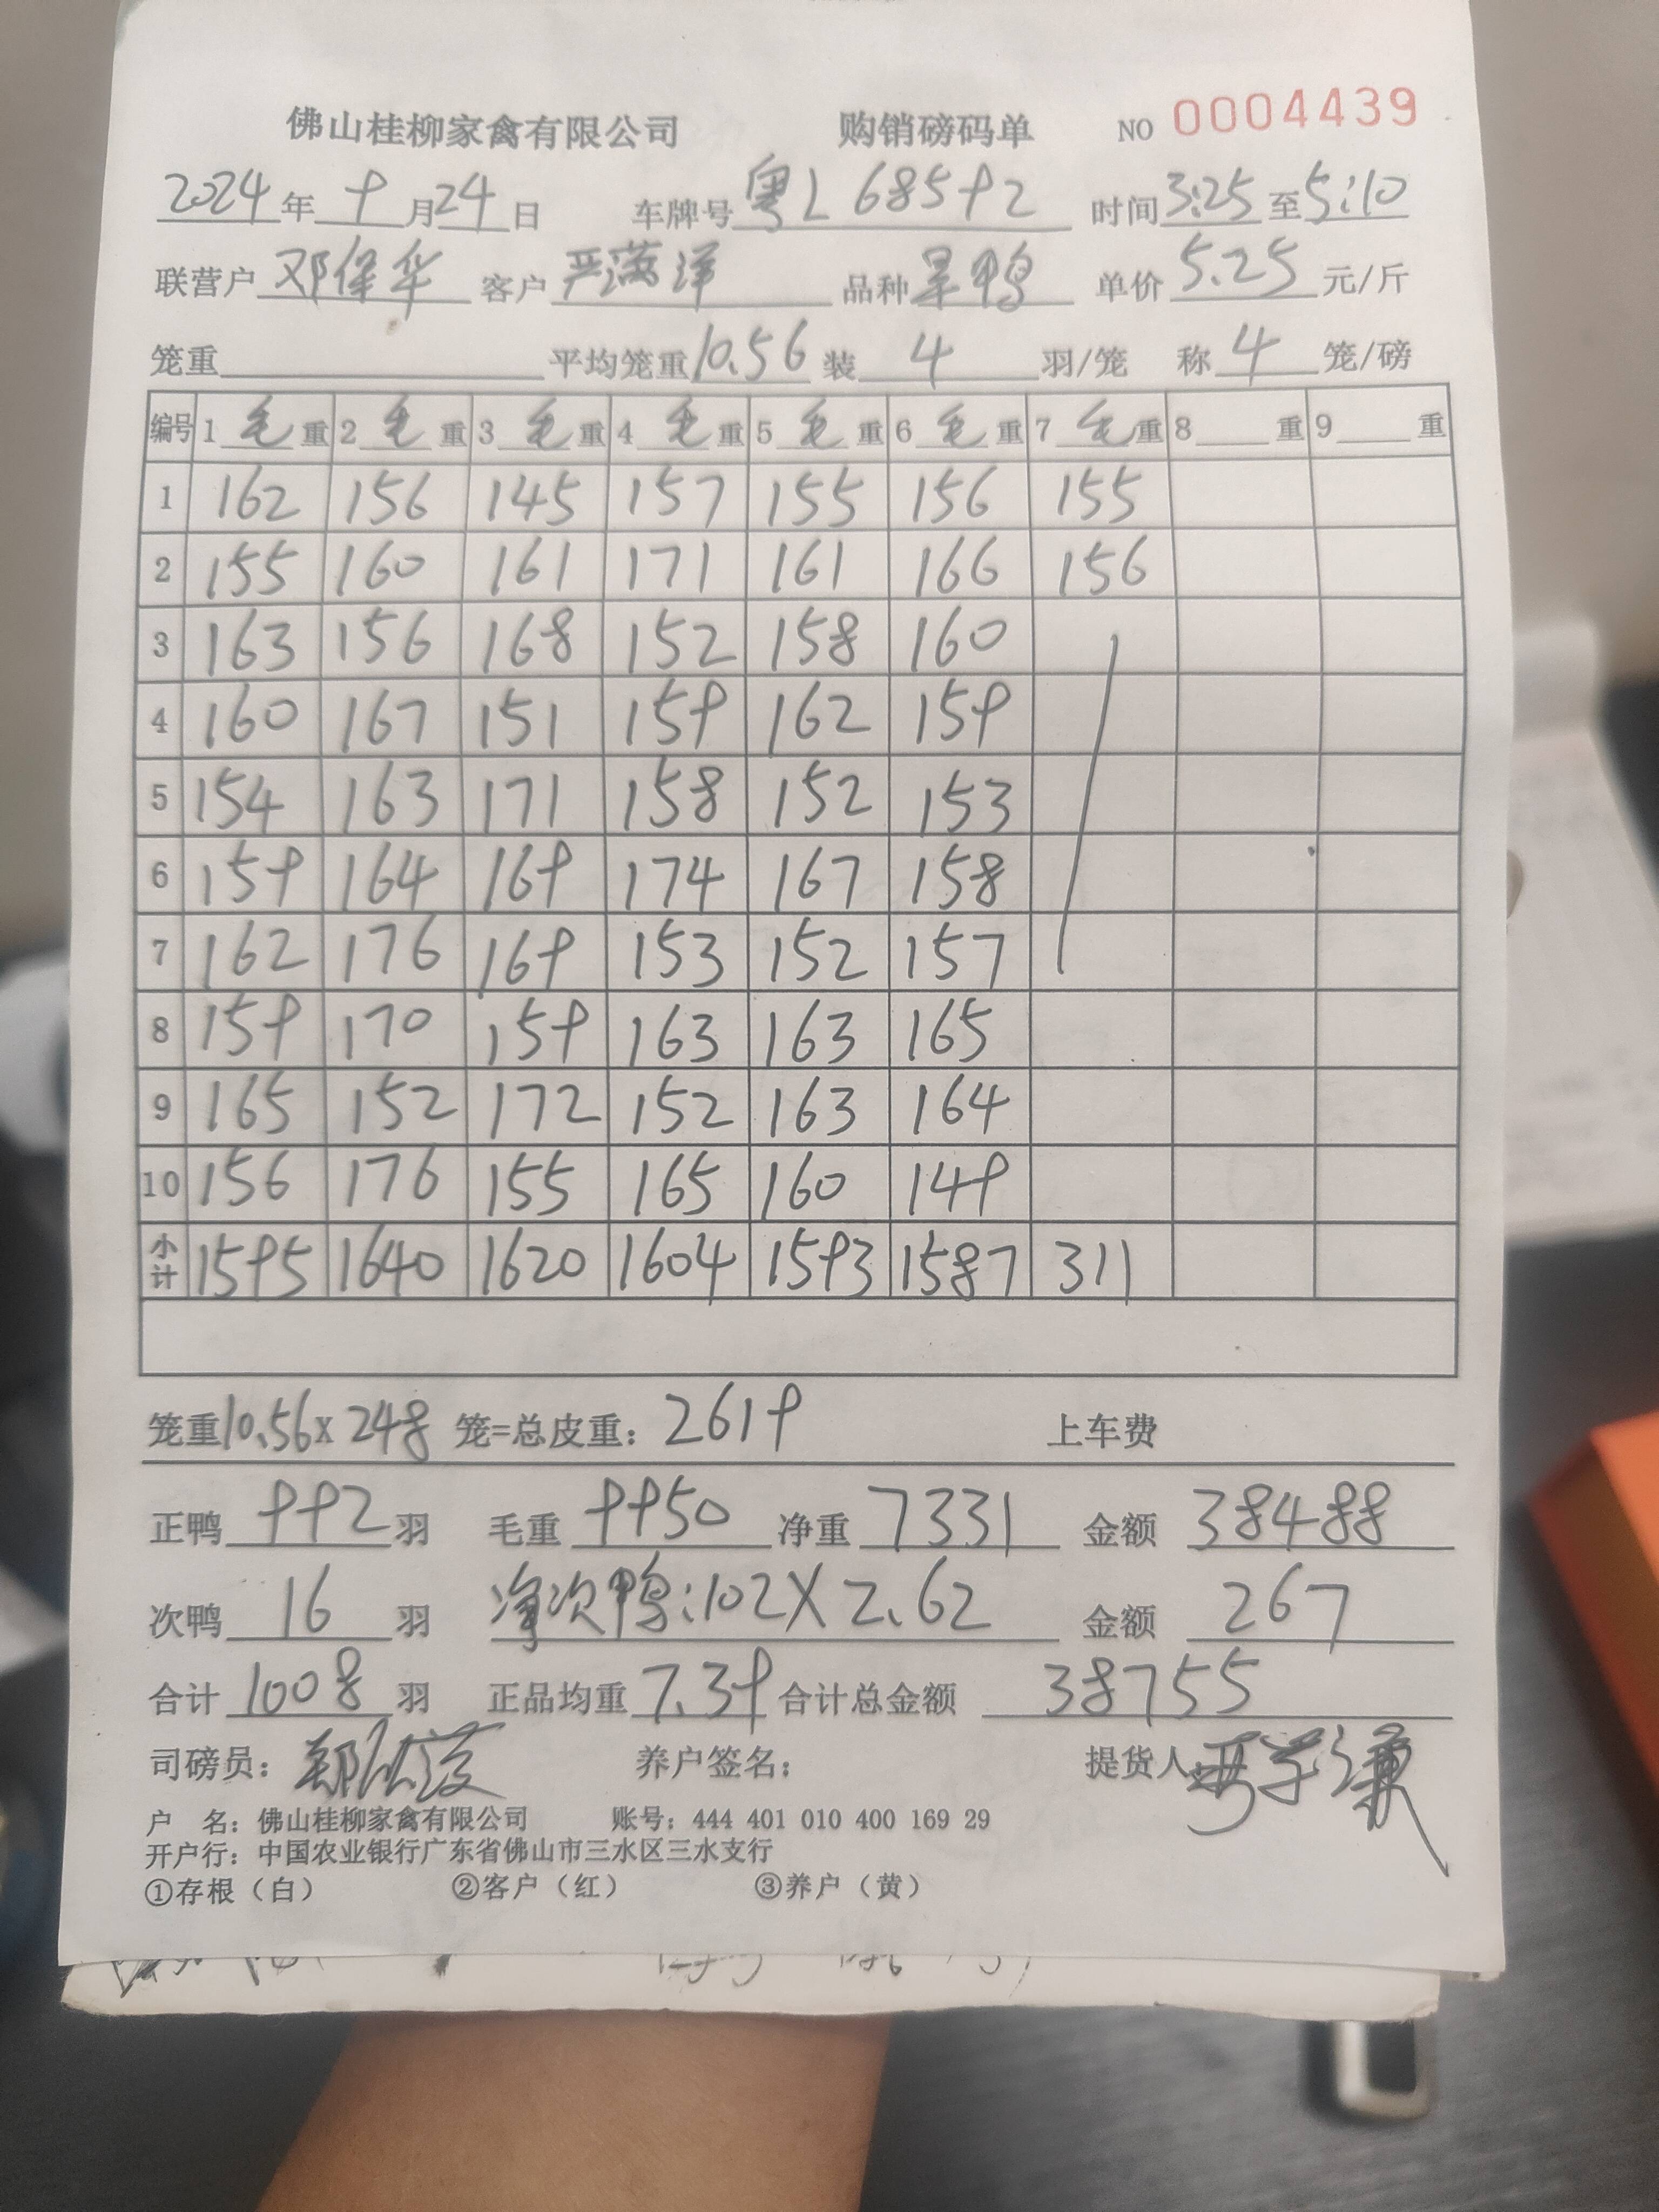 佛山桂柳家禽有限公司 购销磅码单 NO 0004439
2024年9月24日 车牌号粤L68592 时间3:25至5:10
联营户邓保华 客户严满洋 品种旱鸭 单价5.25元/斤
笼重 平均笼重10.56装4羽/笼 称4笼/磅
编号 1毛重 2毛重 3毛重 4毛重 5毛重 6毛重 7毛重 8重 9重
1 162 156 145 157 155 156 155
2 155 160 161 171 161 166 156
3 163 156 168 152 158 160
4 160 167 151 159 162 159
5 154 163 171 158 152 153
6 159 164 169 174 167 158
7 162 176 169 153 152 157
8 159 170 159 163 163 165
9 165 152 172 152 163 164
10 156 176 155 165 160 149
小计 1595 1640 1620 1604 1593 1587 311
笼重10.56x248笼=总皮重：2619 上车费
正鸭992羽 毛重9950 净重7331 金额38488
次鸭16羽 净次鸭:102X2.62 金额267
合计1008羽 正品均重7.39 合计总金额38755
司磅员： 养户签名： 提货人
户 名：佛山桂柳家禽有限公司 账号：444 401 010 400 169 29
开户行：中国农业银行广东省佛山市三水区三水支行
①存根（白） ②客户（红） ③养户（黄）